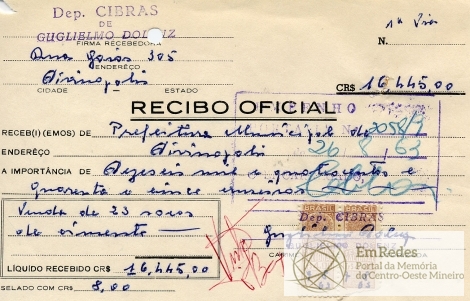 Dep. CIBRAS
DE
GUGLIELMO DOLABIZ
1ª Via
FIRMA RECEBEDORA
N.
Rua Goiás 305
ENDERÊÇO
Divinopolis
CIDADE ESTADO
CR$ 16.445,00
RECIBO OFICIAL
RECEB(I)(EMOS) DE Prefeitura Municipal de
2058/1
ENDERÊÇO Divinopolis
26 8 63
A IMPORTÂNCIA DE Dezeseis mil e quatrocentos e
quarenta e cinco cruzeiros
Venda de 23 sacos
de cimento
LÍQUIDO RECEBIDO CR$ 16.445,00
SELADO COM CR$ 8,00
BRASIL BRASIL
Dep. CIBRAS
EmRedes
Portal da Memória
do Centro-Oeste Mineiro